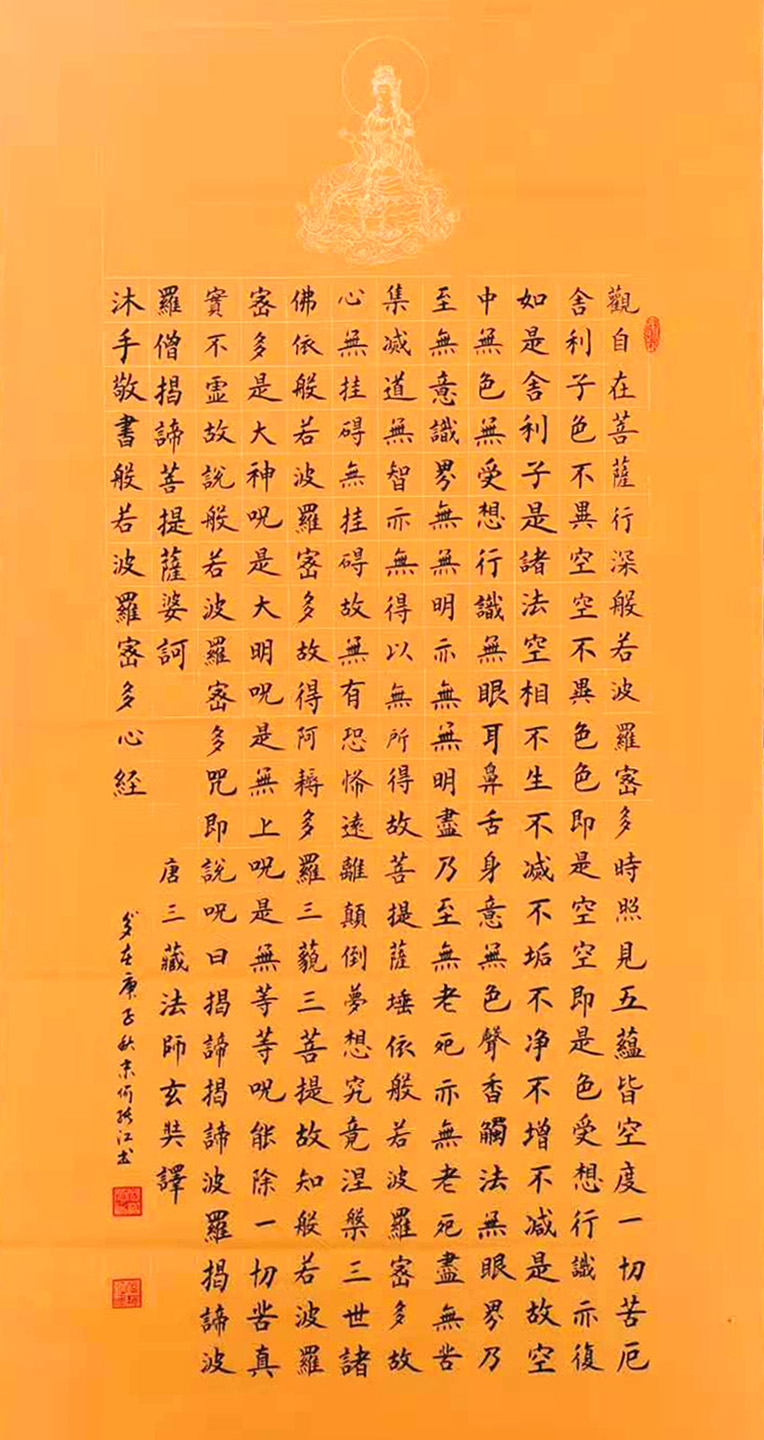 觀自在菩薩行深般若波羅密多時照見五蘊皆空度一切苦厄
舍利子色不異空空不異色色即是空空即是色受想行識亦復
如是舍利子是諸法空相不生不滅不垢不净不增不減是故空
中無色無受想行識無眼耳鼻舌身意無色聲香觸法無眼界乃
至無意識界無無明亦無無明盡乃至無老死亦無老死盡無苦
集滅道無智亦無得以無所得故菩提薩埵依般若波羅密多故
心無挂碍無挂碍故無有恐怖遠離顛倒夢想究竟涅槃三世諸
佛依般若波羅密多故得阿耨多羅三藐三菩提故知般若波羅
密多是大神呪是大明呪是無上呪是無等等呪能除一切苦真
實不虛故說般若波羅密多咒即說呪曰揭諦揭諦波羅揭諦波
羅僧揭諦菩提薩婆訶
唐三藏法師玄奘譯
沐手敬書般若波羅密多心経
歲在庚子秋
江書